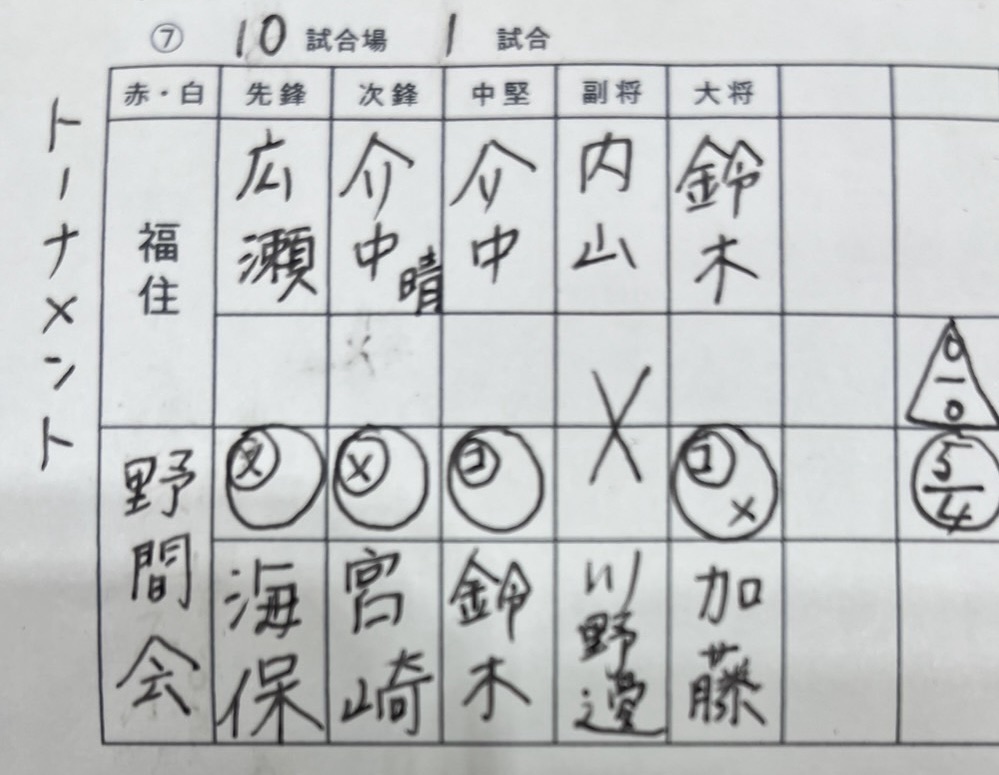 ⑦ 10 試合場 1 試合
トーナメント
赤・白 先鋒 次鋒 中堅 副将 大将
福住 広瀬 介中晴 介中 内山 鈴木
0/0
メ メ コ × コ メ 5/4
野間会 海保 宮崎 鈴木 川野邊 加藤